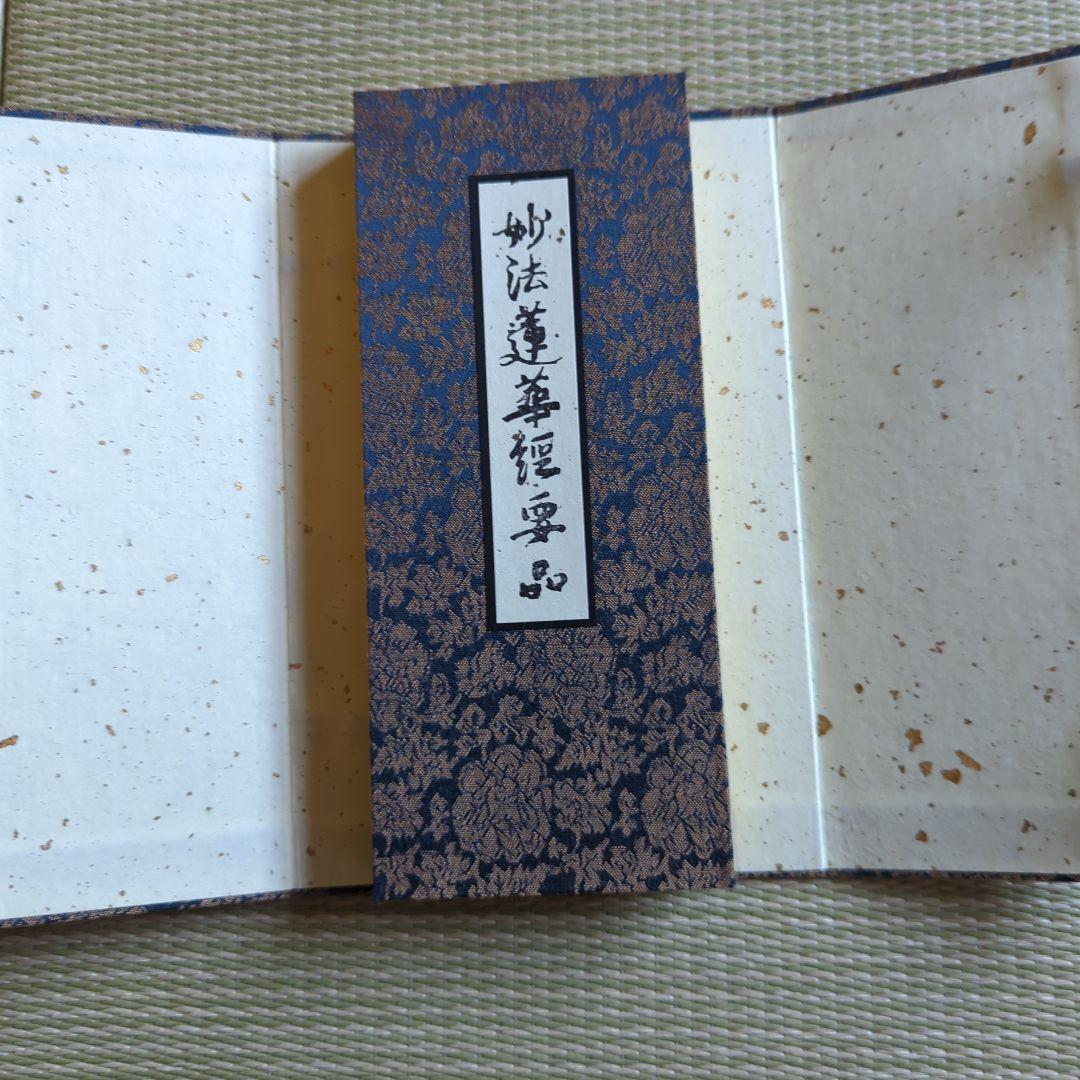 妙法蓮華經要品